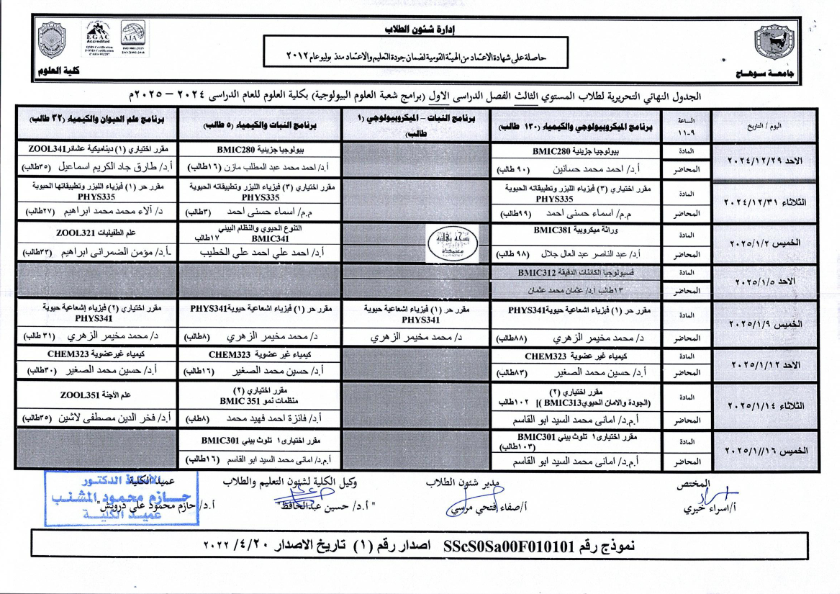 إدارة شئون الطلاب
حاصلة على شهادة الاعتماد من الهيئة القومية لضمان جودة التعليم والاعتماد منذ يوليو عام ٢٠١٢
EGAC
AJA
كلية العلوم
جامعة سوهاج
الجدول النهائي التحريرية لطلاب المستوي الثالث الفصل الدراسى الاول (برامج شعبة العلوم البيولوجية) بكلية العلوم للعام الدراسى ٢٠٢٤ – ٢٠٢٥م
اليوم / التاريخ
الساعة ٩-١١
برنامج الميكروبيولوجي والكيمياء (١٣٠ طالب)
برنامج النبات – الميكروبيولوجي (١ طالب)
برنامج النبات والكيمياء (٥ طالب)
برنامج علم الحيوان والكيمياء (٣٢ طالب)
الاحد ٢٠٢٤/١٢/٢٩
المادة
بيولوجيا جزيئية BMIC280
بيولوجيا جزيئية BMIC280
مقرر اختياري (١) ديناميكية عشائر ZOOL341
المحاضر
أ.د/ احمد محمد حسانين (٩٠ طالب)
أ.د/ احمد محمد عبد المطلب مازن (١٦طالب)
أ.د/ طارق جاد الكريم اسماعيل (٣٥طالب)
الثلاثاء ٢٠٢٤/١٢/٣١
المادة
مقرر اختياري (٣) فيزياء الليزر وتطبيقاته الحيوية PHYS335
مقرر اختياري (٣) فيزياء الليزر وتطبيقاته الحيوية PHYS335
مقرر حر (١) فيزياء الليزر وتطبيقاتها الحيوية PHYS335
المحاضر
م.م/ اسماء حسنى احمد (٩٩طالب)
م.م/ اسماء حسنى احمد (٣طالب)
د/ ألاء محمد محمد ابراهيم (٢٧طالب)
الخميس ٢٠٢٥/١/٢
المادة
وراثة ميكروبية BMIC381
التنوع الحيوي والنظام البيئي BMIC341 ١٧طالب
علم الطفيليات ZOOL321
المحاضر
أ.د/ عبد الناصر عبد العال جلال (٩٨ طالب)
أ.د/ احمد علي احمد على الخطيب
أ.د/ مؤمن الضمرانى ابراهيم (٣٣طالب)
الاحد ٢٠٢٥/١/٥
المادة
فسيولوجيا الكائنات الدقيقة BMIC312
المحاضر
١٣طالب أ.د/ عثمان محمد عثمان
الخميس ٢٠٢٥/١/٩
المادة
مقرر حر (١) فيزياء اشعاعية حيوية PHYS341
مقرر حر (١) فيزياء إشعاعية حيوية PHYS341
مقرر حر (١) فيزياء اشعاعية حيوية PHYS341
مقرر اختياري (٢) فيزياء إشعاعية حيوية PHYS341
المحاضر
د/ محمد مخيمر الزهري (٨٨طالب)
د/ محمد مخيمر الزهري
د/ محمد مخيمر الزهري (٨طالب)
د/ محمد مخيمر الزهري (٣١ طالب)
الاحد ٢٠٢٥/١/١٢
المادة
كيمياء غير عضوية CHEM323
كيمياء غير عضوية CHEM323
كيمياء غيرعضوية CHEM323
المحاضر
أ.د/ حسين محمد الصغير (٨٣طالب)
أ.د/ حسين محمد الصغير (١٦طالب)
أ.د/ حسين محمد الصغير (٣٠طالب)
الثلاثاء ٢٠٢٥/١/١٤
المادة
مقرر اختياري (٢)
(الجودة والامان الحيوي BMIC313) ١٠٢طالب
مقرر اختياري (٢)
منظمات نمو BMIC 351
علم الأجنة ZOOL351
المحاضر
أ.م.د/ امانى محمد السيد ابو القاسم
أ.د/ فائزة احمد فهيد محمد (٨طالب)
أ.د/ فخر الدين مصطفى لاشين (٣٥طالب)
الخميس ٢٠٢٥/١/١٦
المادة
مقرر اختيارى١ تلوث بيئي BMIC301 (١٠٣طالب)
مقرر اختيارى١ تلوث بيئي BMIC301
المحاضر
أ.م.د/ امانى محمد السيد ابو القاسم
أ.م.د/ امانى محمد السيد ابو القاسم (١٦طالب)
المختص
مدير شئون الطلاب
وكيل الكلية لشئون التعليم والطلاب
عميد الكلية
أ/اسراء خيري
أ/صفاء فتحي مرسي
"أ.د/ حسين عبدالحافظ"
أ.د/ حازم محمود علي درويش"
الأستاذ الدكتور
حازم محمود المشنب
عميد الكلية
نموذج رقم SScS0Sa00F010101 اصدار رقم (١) تاريخ الاصدار ٢٠٢٢/٤/٢٠